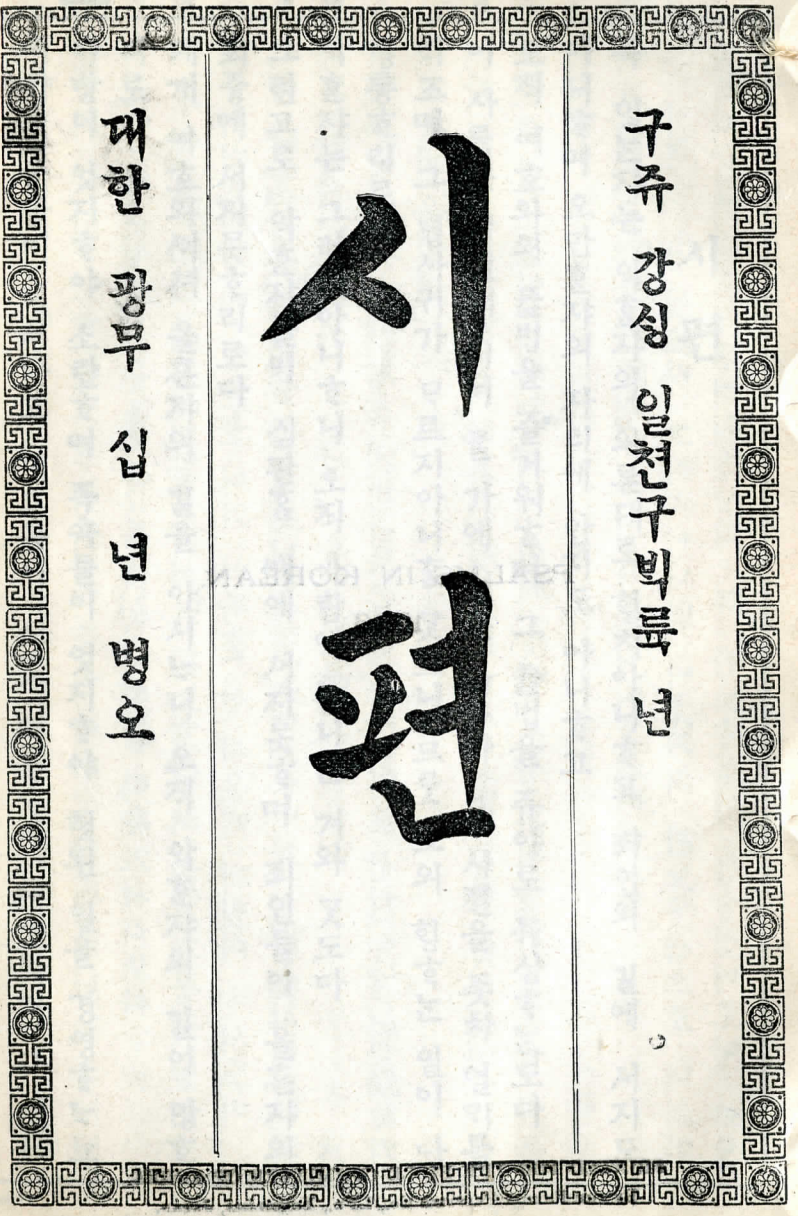 구쥬 강싱 일쳔구빅륙 년
시편
대한 광무 십 년 병오